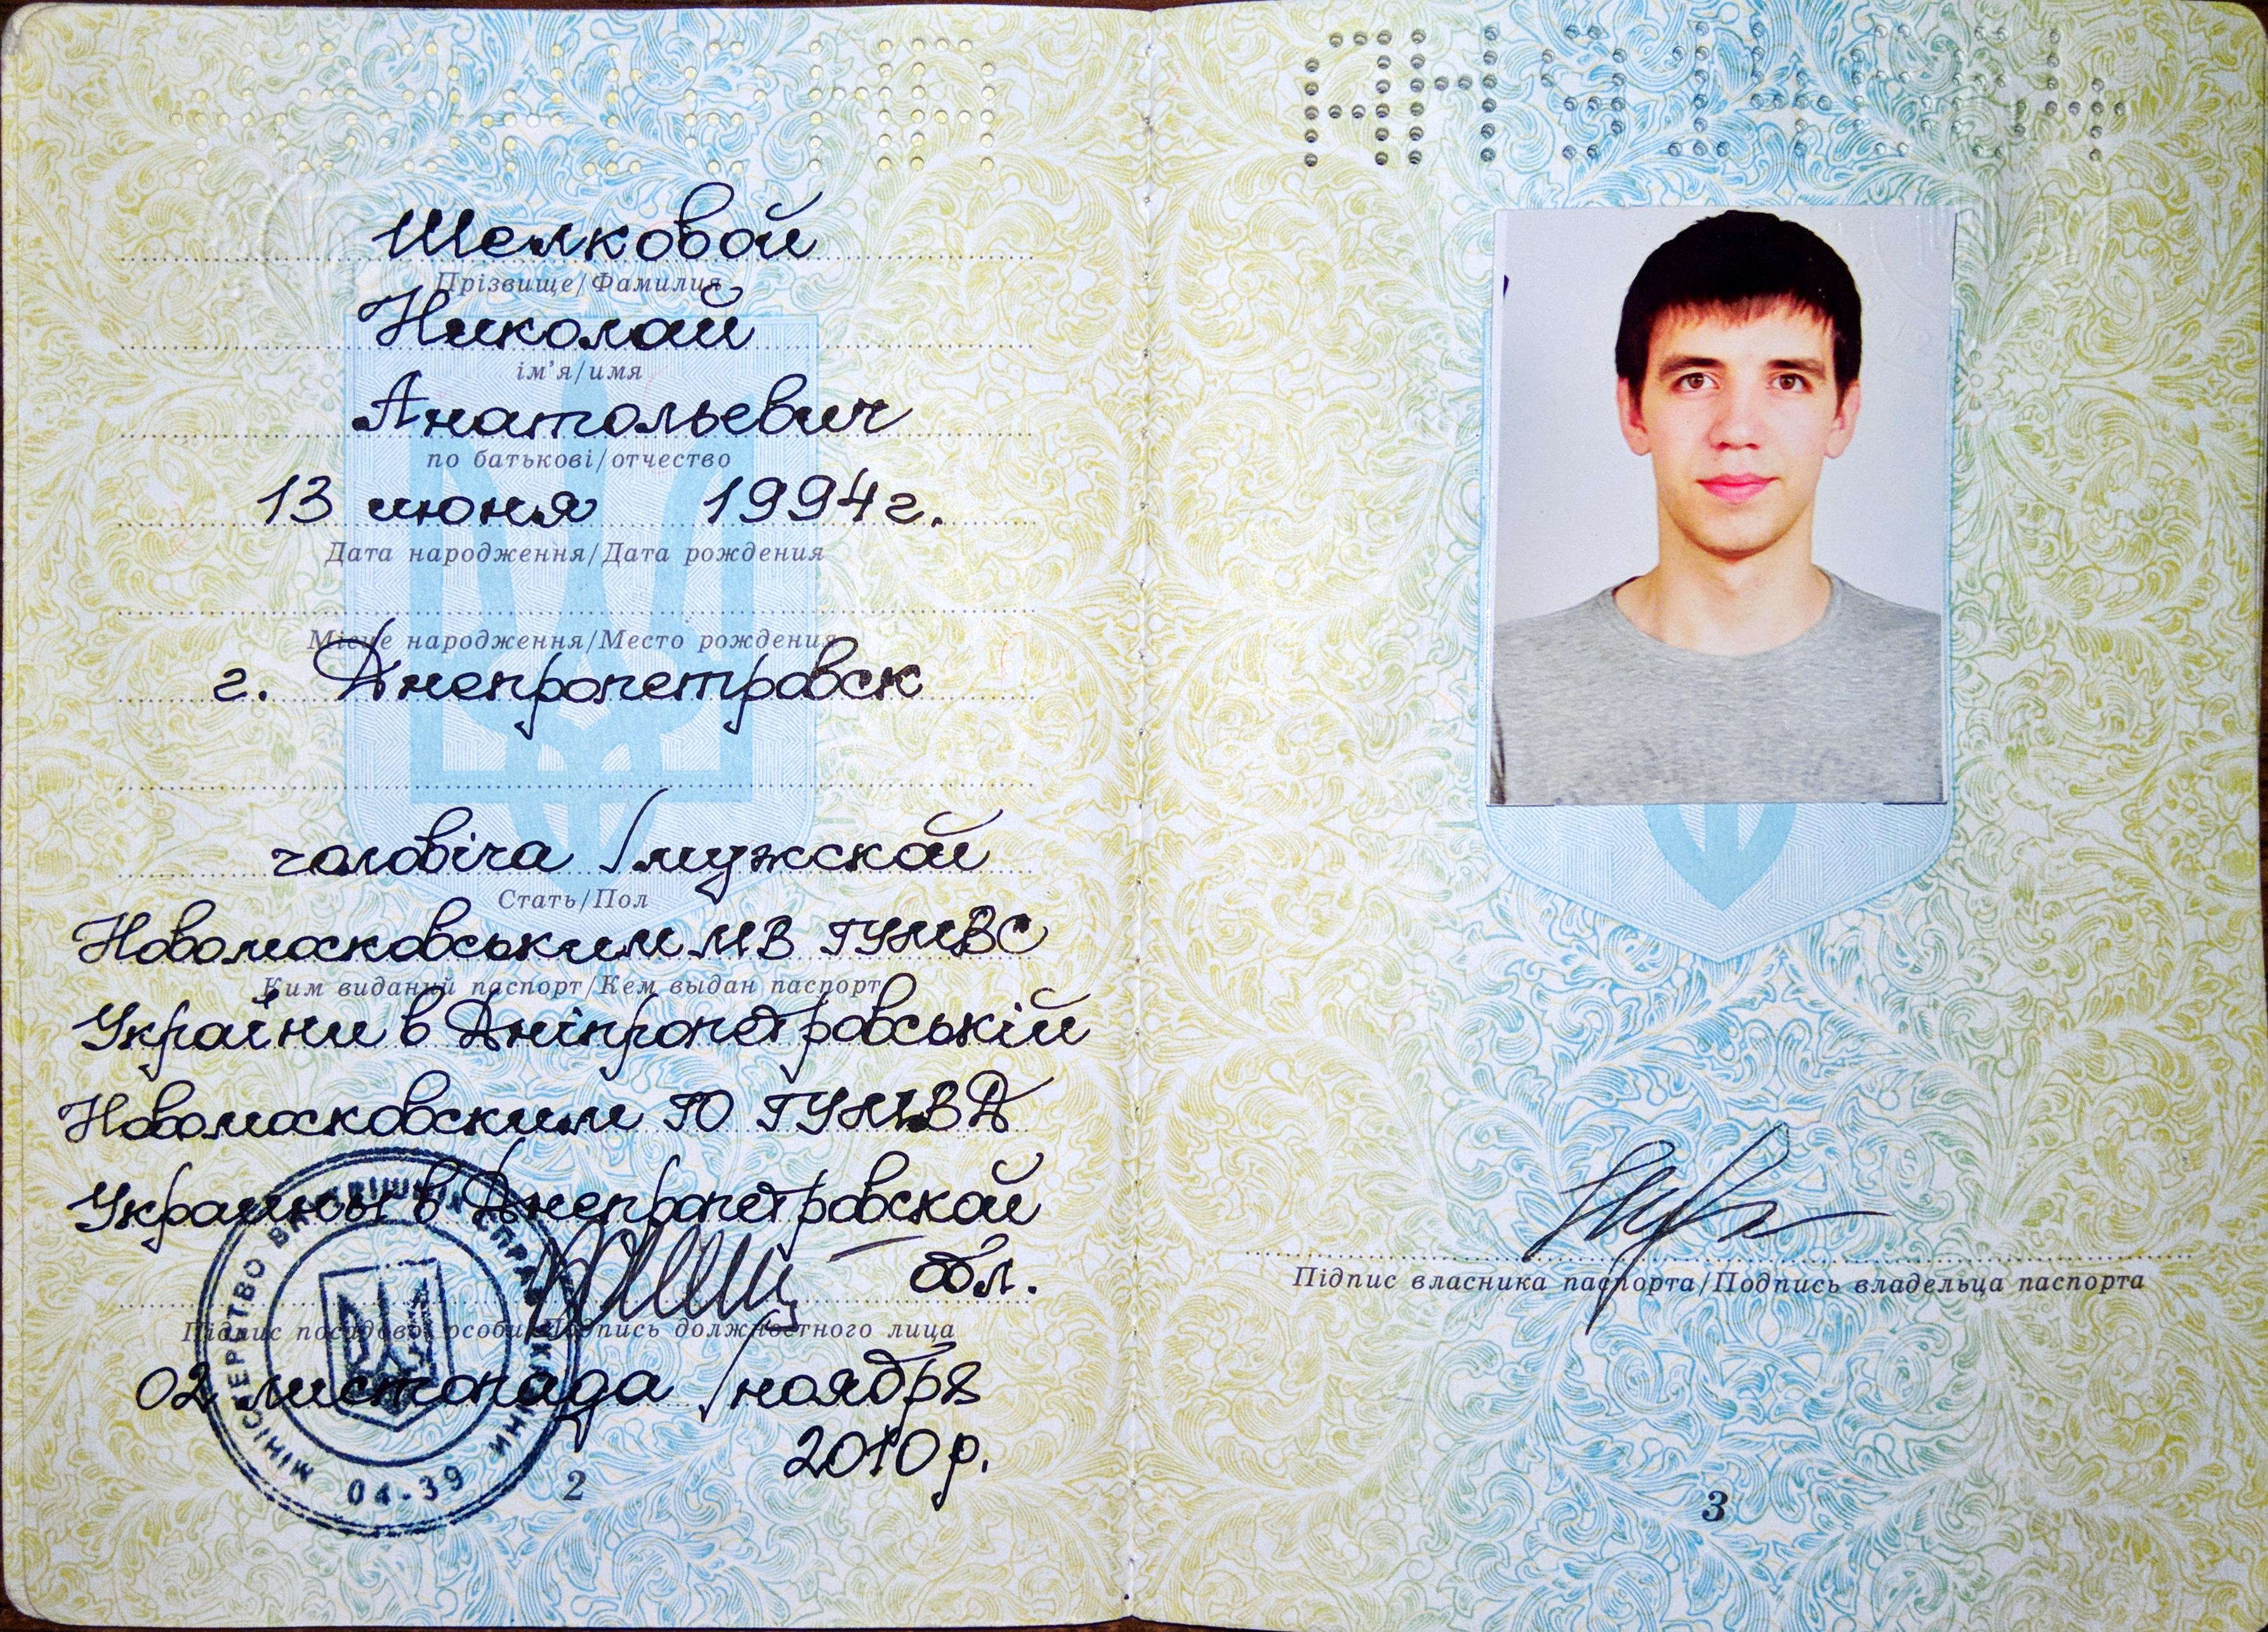 Шелковой
Прізвище/Фамилия
Николай
ім'я/имя
Анатольевич
по батькові/отчество
13 июня 1994г.
Дата народження/Дата рождения
Місце народження/Место рождения
г. Днепропетровск
чоловіча /мужской
Стать/Пол
Новомосковським МВ ГУМВС
Ким виданий паспорт/Кем выдан паспорт
України в Дніпропетровській
Новомосковским ГО ГУМВД
Украины в Днепропетровской
обл.
Підпис посадової особи/Подпись должностного лица
02 листопада /ноября
2010р.
04-39
2
Підпис власника паспорта/Подпись владельца паспорта
3